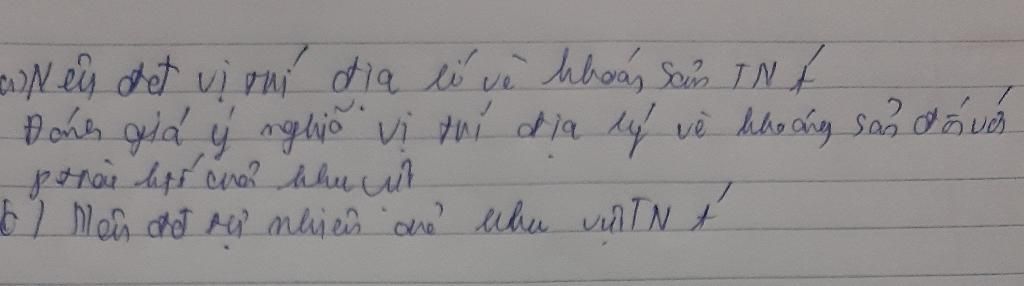 a) Nêu đđ vị trí địa lí về khoáng sản TN Á
Đánh giá ý nghĩa vị trí địa lý về khoáng sản đối với
p triển của khu vực
b) Nêu đđ tự nhiên của khu vực TN Á